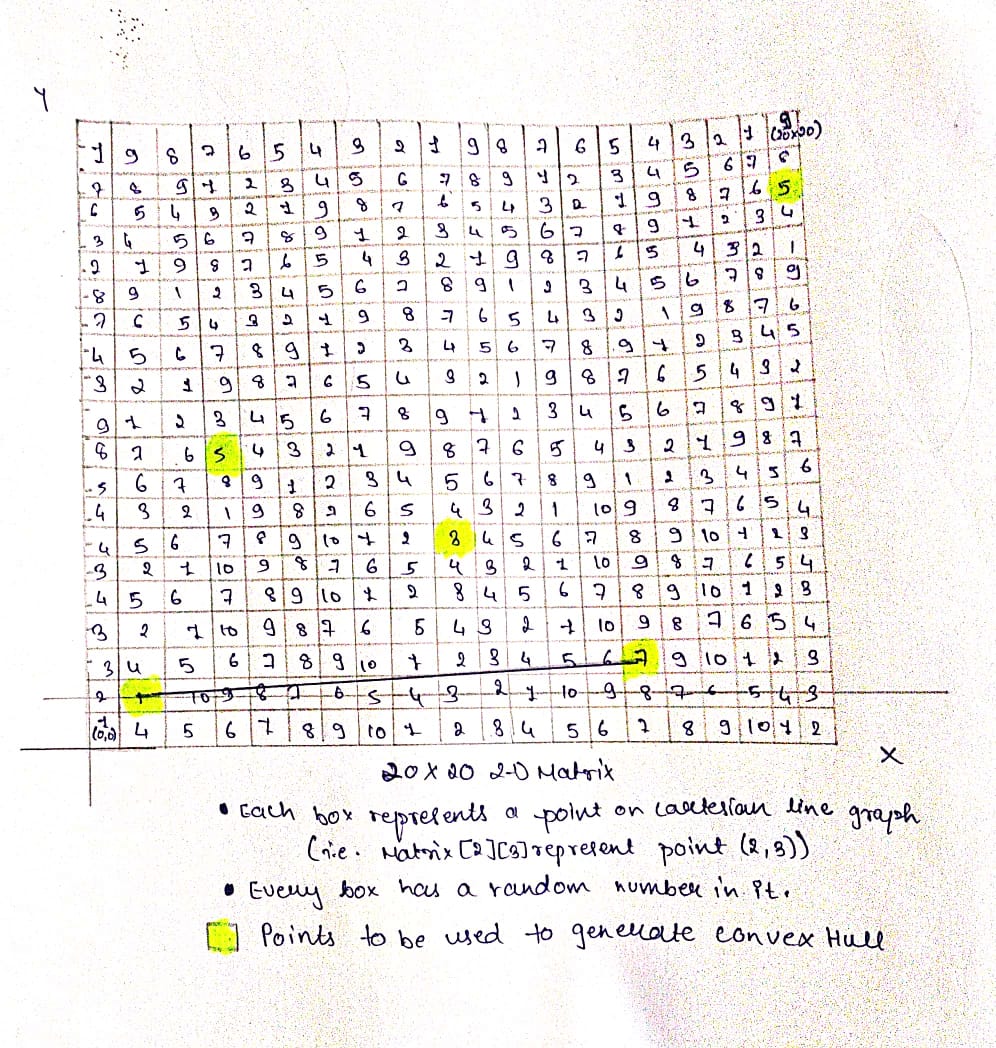 Y
1 9 8 7 6 5 4 3 2 1 9 8 7 6 5 4 3 2 1 9
(20x20)
7 8 9 1 2 3 4 5 6 7 8 9 1 2 3 4 5 6 7 8
6 5 4 3 2 1 9 8 7 6 5 4 3 2 1 9 8 7 6 5
3 4 5 6 7 8 9 1 2 3 4 5 6 7 8 9 1 2 3 4
2 1 9 8 7 6 5 4 3 2 1 9 8 7 6 5 4 3 2 1
8 9 1 2 3 4 5 6 7 8 9 1 2 3 4 5 6 7 8 9
7 6 5 4 3 2 1 9 8 7 6 5 4 3 2 1 9 8 7 6
4 5 6 7 8 9 1 2 3 4 5 6 7 8 9 1 2 3 4 5
3 2 1 9 8 7 6 5 4 3 2 1 9 8 7 6 5 4 3 2
9 1 2 3 4 5 6 7 8 9 1 2 3 4 5 6 7 8 9 1
8 7 6 5 4 3 2 1 9 8 7 6 5 4 3 2 1 9 8 7
5 6 7 8 9 1 2 3 4 5 6 7 8 9 1 2 3 4 5 6
4 3 2 1 9 8 7 6 5 4 3 2 1 10 9 8 7 6 5 4
4 5 6 7 8 9 10 1 2 3 4 5 6 7 8 9 10 1 2 3
3 2 1 10 9 8 7 6 5 4 3 2 1 10 9 8 7 6 5 4
4 5 6 7 8 9 10 1 2 3 4 5 6 7 8 9 10 1 2 3
3 2 1 10 9 8 7 6 5 4 3 2 1 10 9 8 7 6 5 4
3 4 5 6 7 8 9 10 1 2 3 4 5 6 7 9 10 1 2 3
2 1 10 9 8 7 6 5 4 3 2 1 10 9 8 7 6 5 4 3
1 4 5 6 7 8 9 10 1 2 3 4 5 6 7 8 9 10 1 2
(0,0)
X
20 X 20 2-D Matrix
• Each box represents a point on Cartesian line graph
(i.e. Matrix [2][3] represent point (2,3))
• Every box has a random number in it.
Points to be used to generate convex Hull